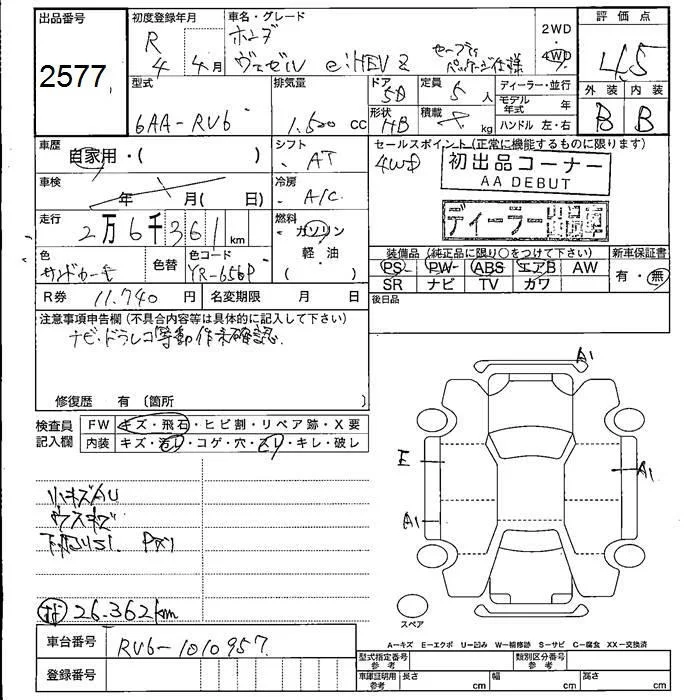 出品番号
2577
初度登録年月
R 4年 4月
車名・グレード
ホンダ
ヴェゼル e:HEV Z セーフティパッケージ仕様
2WD
・
4WD
評価点
4.5
外装 内装
B B
型式
6AA-RV6
排気量
1.500 cc
ドア
5D
形状
HB
定員
5 人
積載
kg
ディーラー・並行
モデル年式 年
ハンドル 左・右
車歴
自家用・( )
シフト
AT
セールスポイント(正常に機能するものに限ります)
4WD
初出品コーナー
AA DEBUT
ディーラー
車検
年 月( 日)
冷房
A/C
走行
2万6千361 km
燃料
ガソリン
・
軽・油
( )
色
サンドカーキ
色替
色コード
YR-656P
装備品(純正品に限り○をつけて下さい)
PS PW ABS エアB AW
SR ナビ TV カワ
新車保証書
有・無
R券 11.740 円
名変期限 月 日
後日品
注意事項申告欄(不具合内容等は具体的に記入して下さい)
ナビ・ドラレコ等動作未確認.
修復歴 有 〔箇所 〕
検査員
記入欄
FW キズ・飛石・ヒビ割・リペア跡・X要
内装 キズ・汚れ・コゲ・穴・スレ・キレ・破レ
小キズAU
ウスキズ
26.362km
A1
E
A1
A1
スペア
A-キズ E-エクボ U-凹み W-補修跡 S-サビ C-腐食 XX-交換済
車台番号
RV6-1010957
登録番号
型式指定番号
参考
類別区分番号
参考
車庫証明用
参考
長さ cm
幅 cm
高さ cm